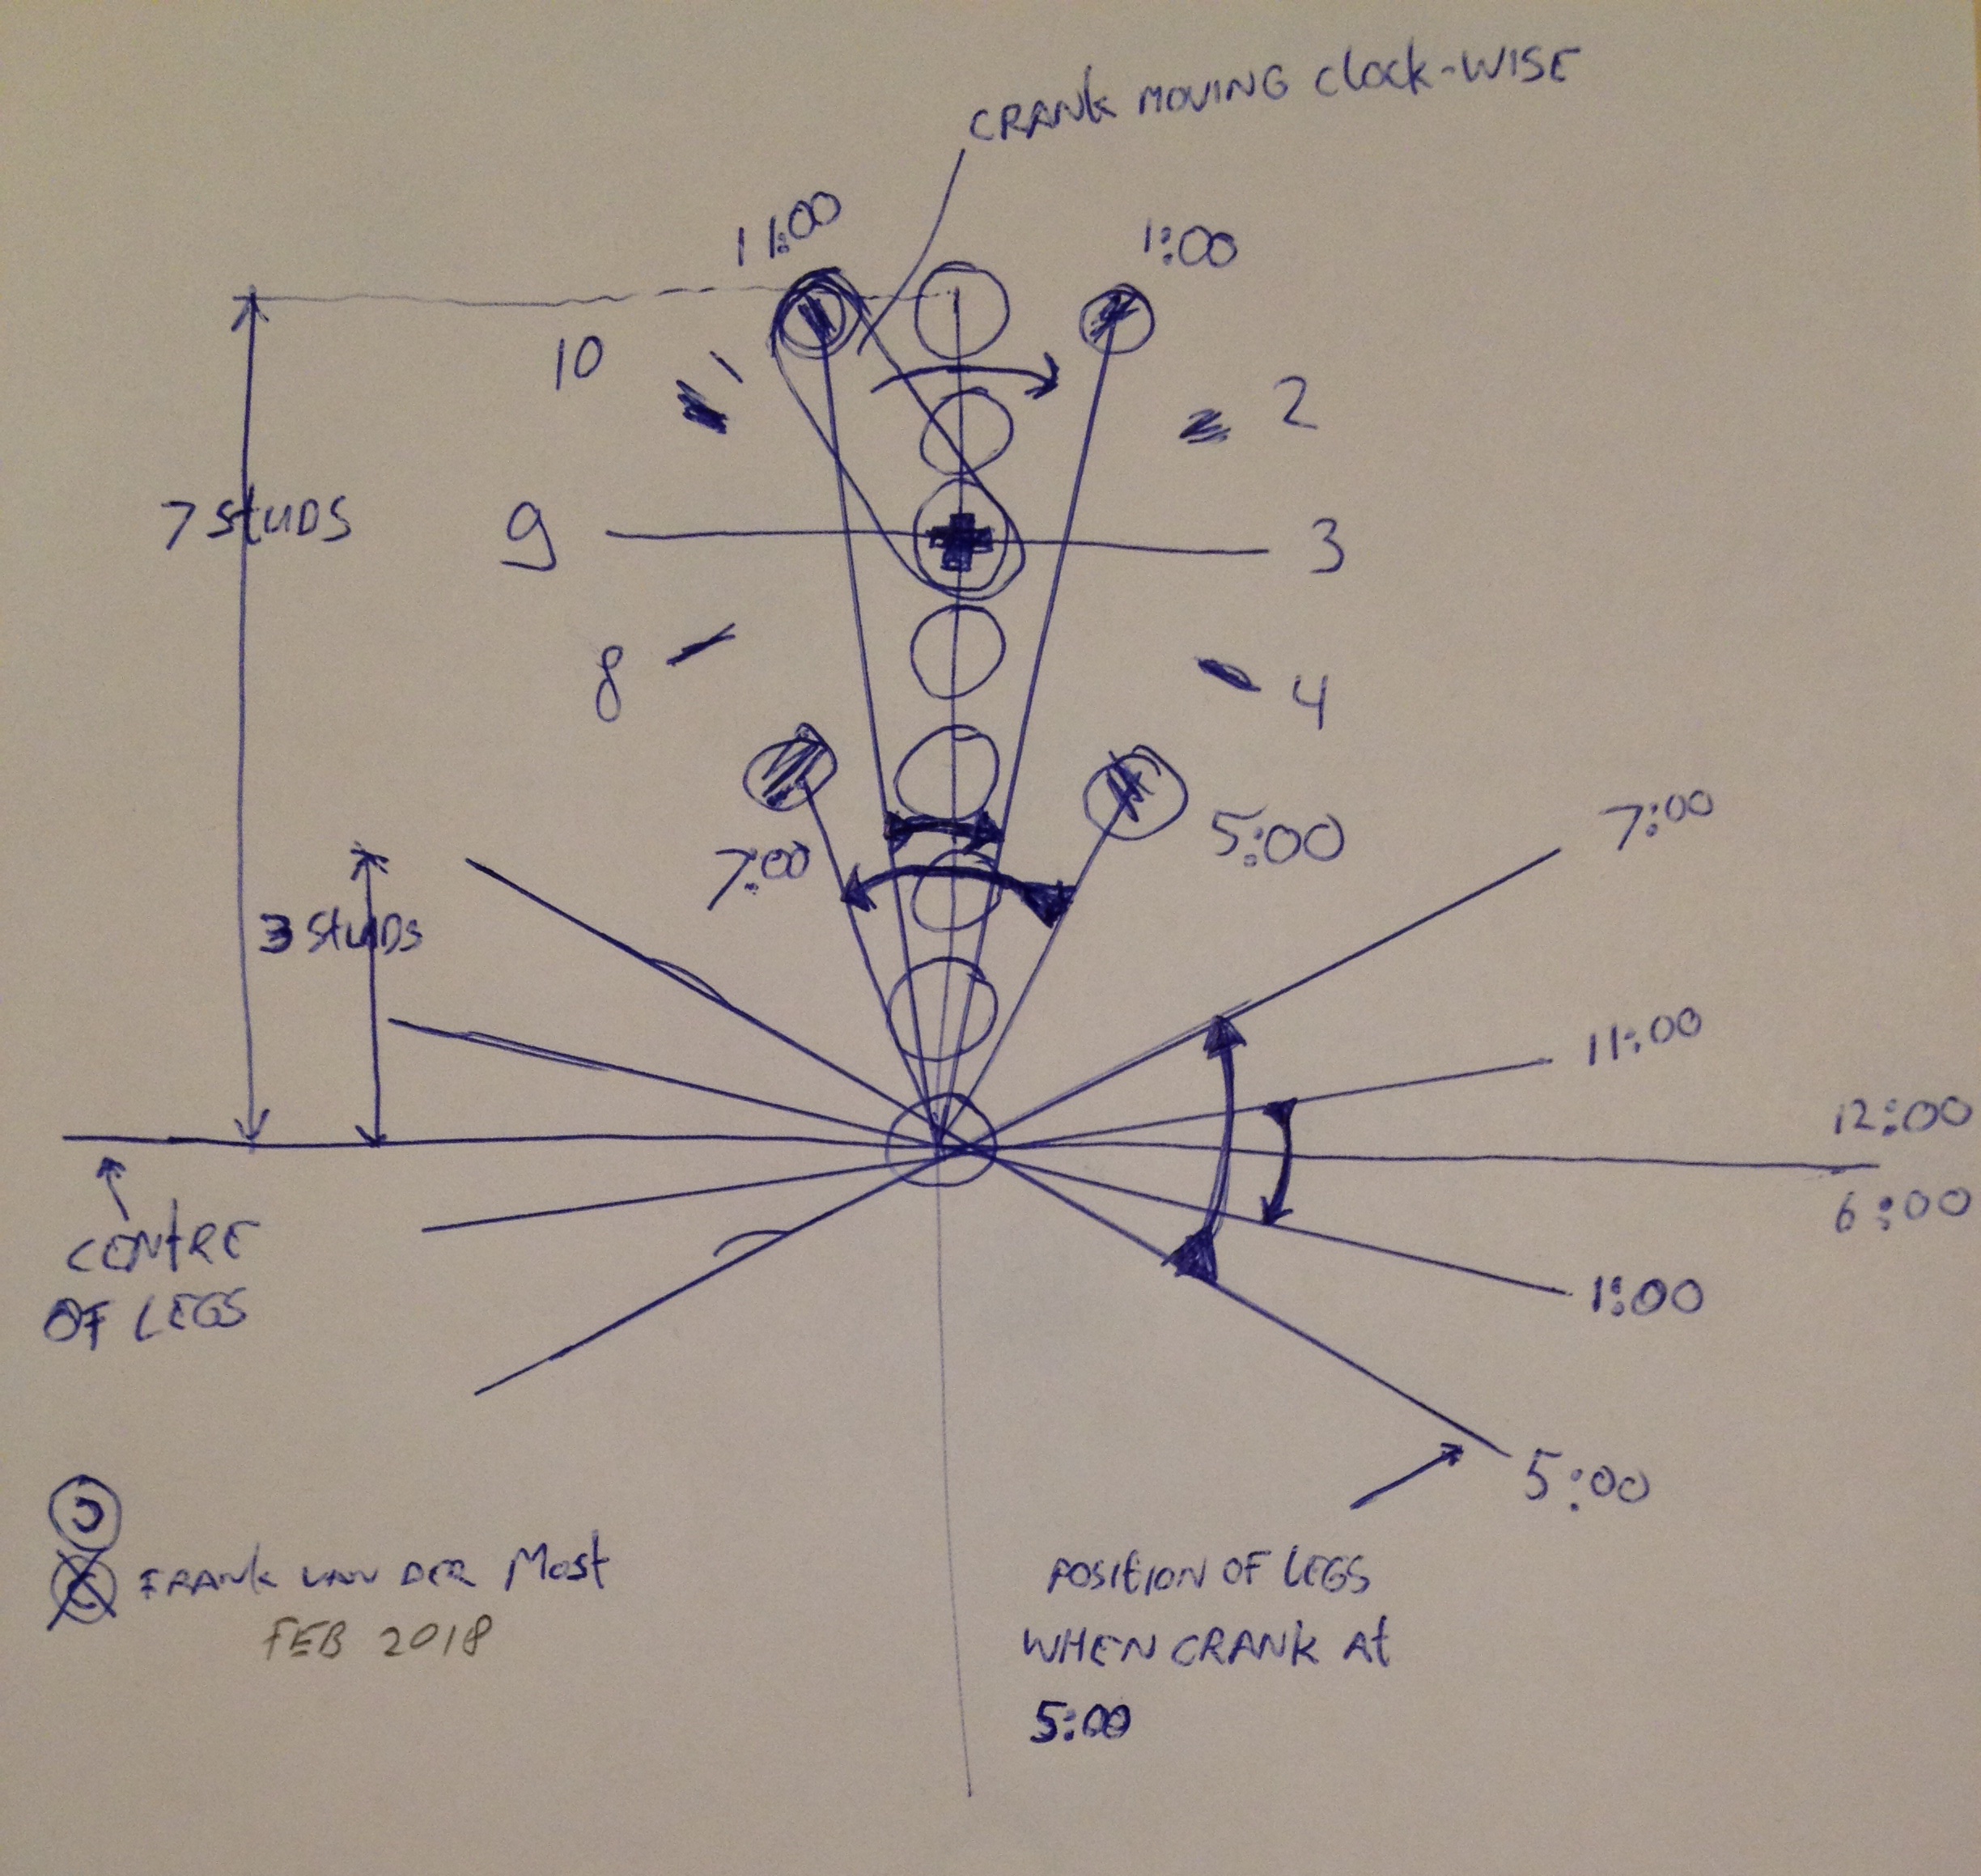 CRANK MOVING Clock-WISE
11:00
1:00
10
2
7 StUDS
9
3
8
4
7:00
5:00
7:00
3 StUDS
11:00
12:00
6:00
CENtRE
OF LEGS
1:00
5:00
FRANK VAN DER Most
FEB 2018
POSItION OF LEGS
WHEN CRANK At
5:00